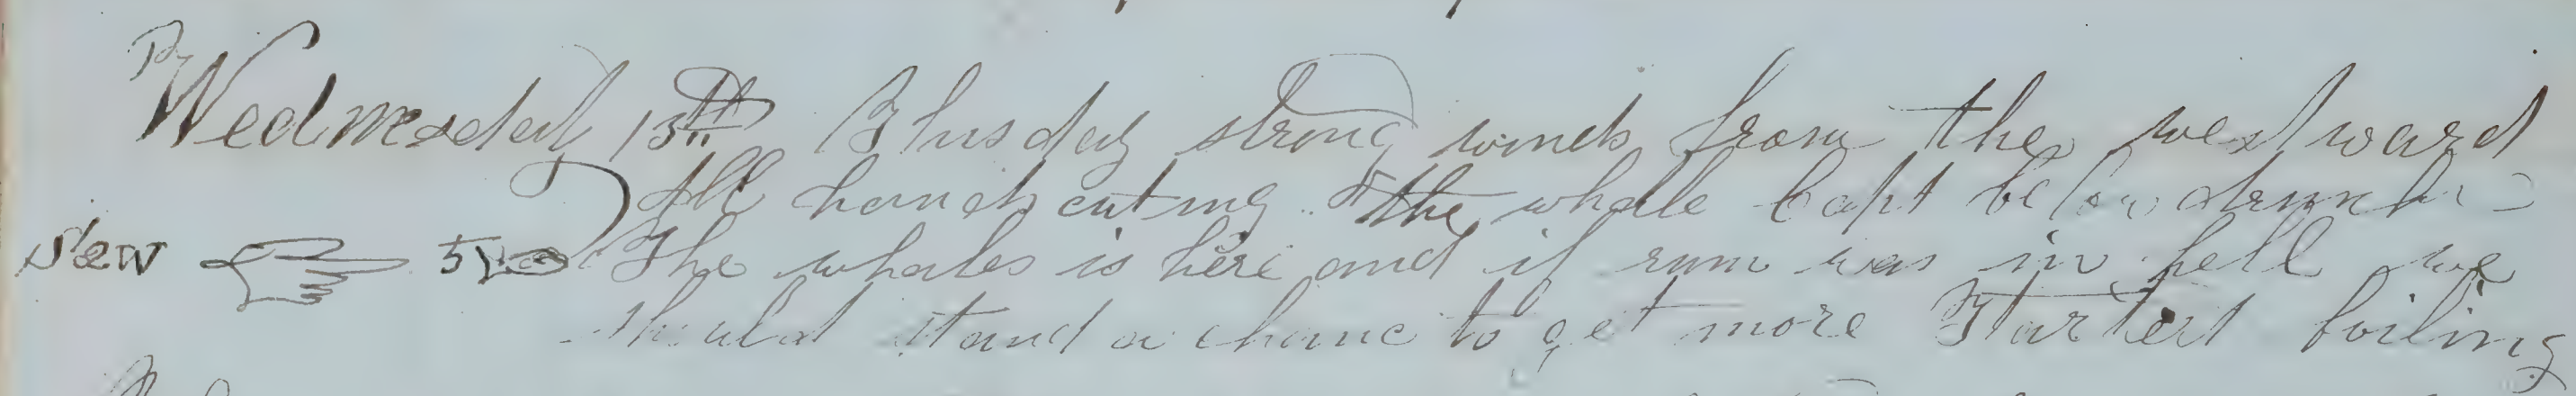 Wednesday 13th Thusday strong winds from the westward
All hands cuting the whale Capt below drunk
Saw 5 The whales is here and if rum was in hell we
should stand a chanc to get more Startert boiling